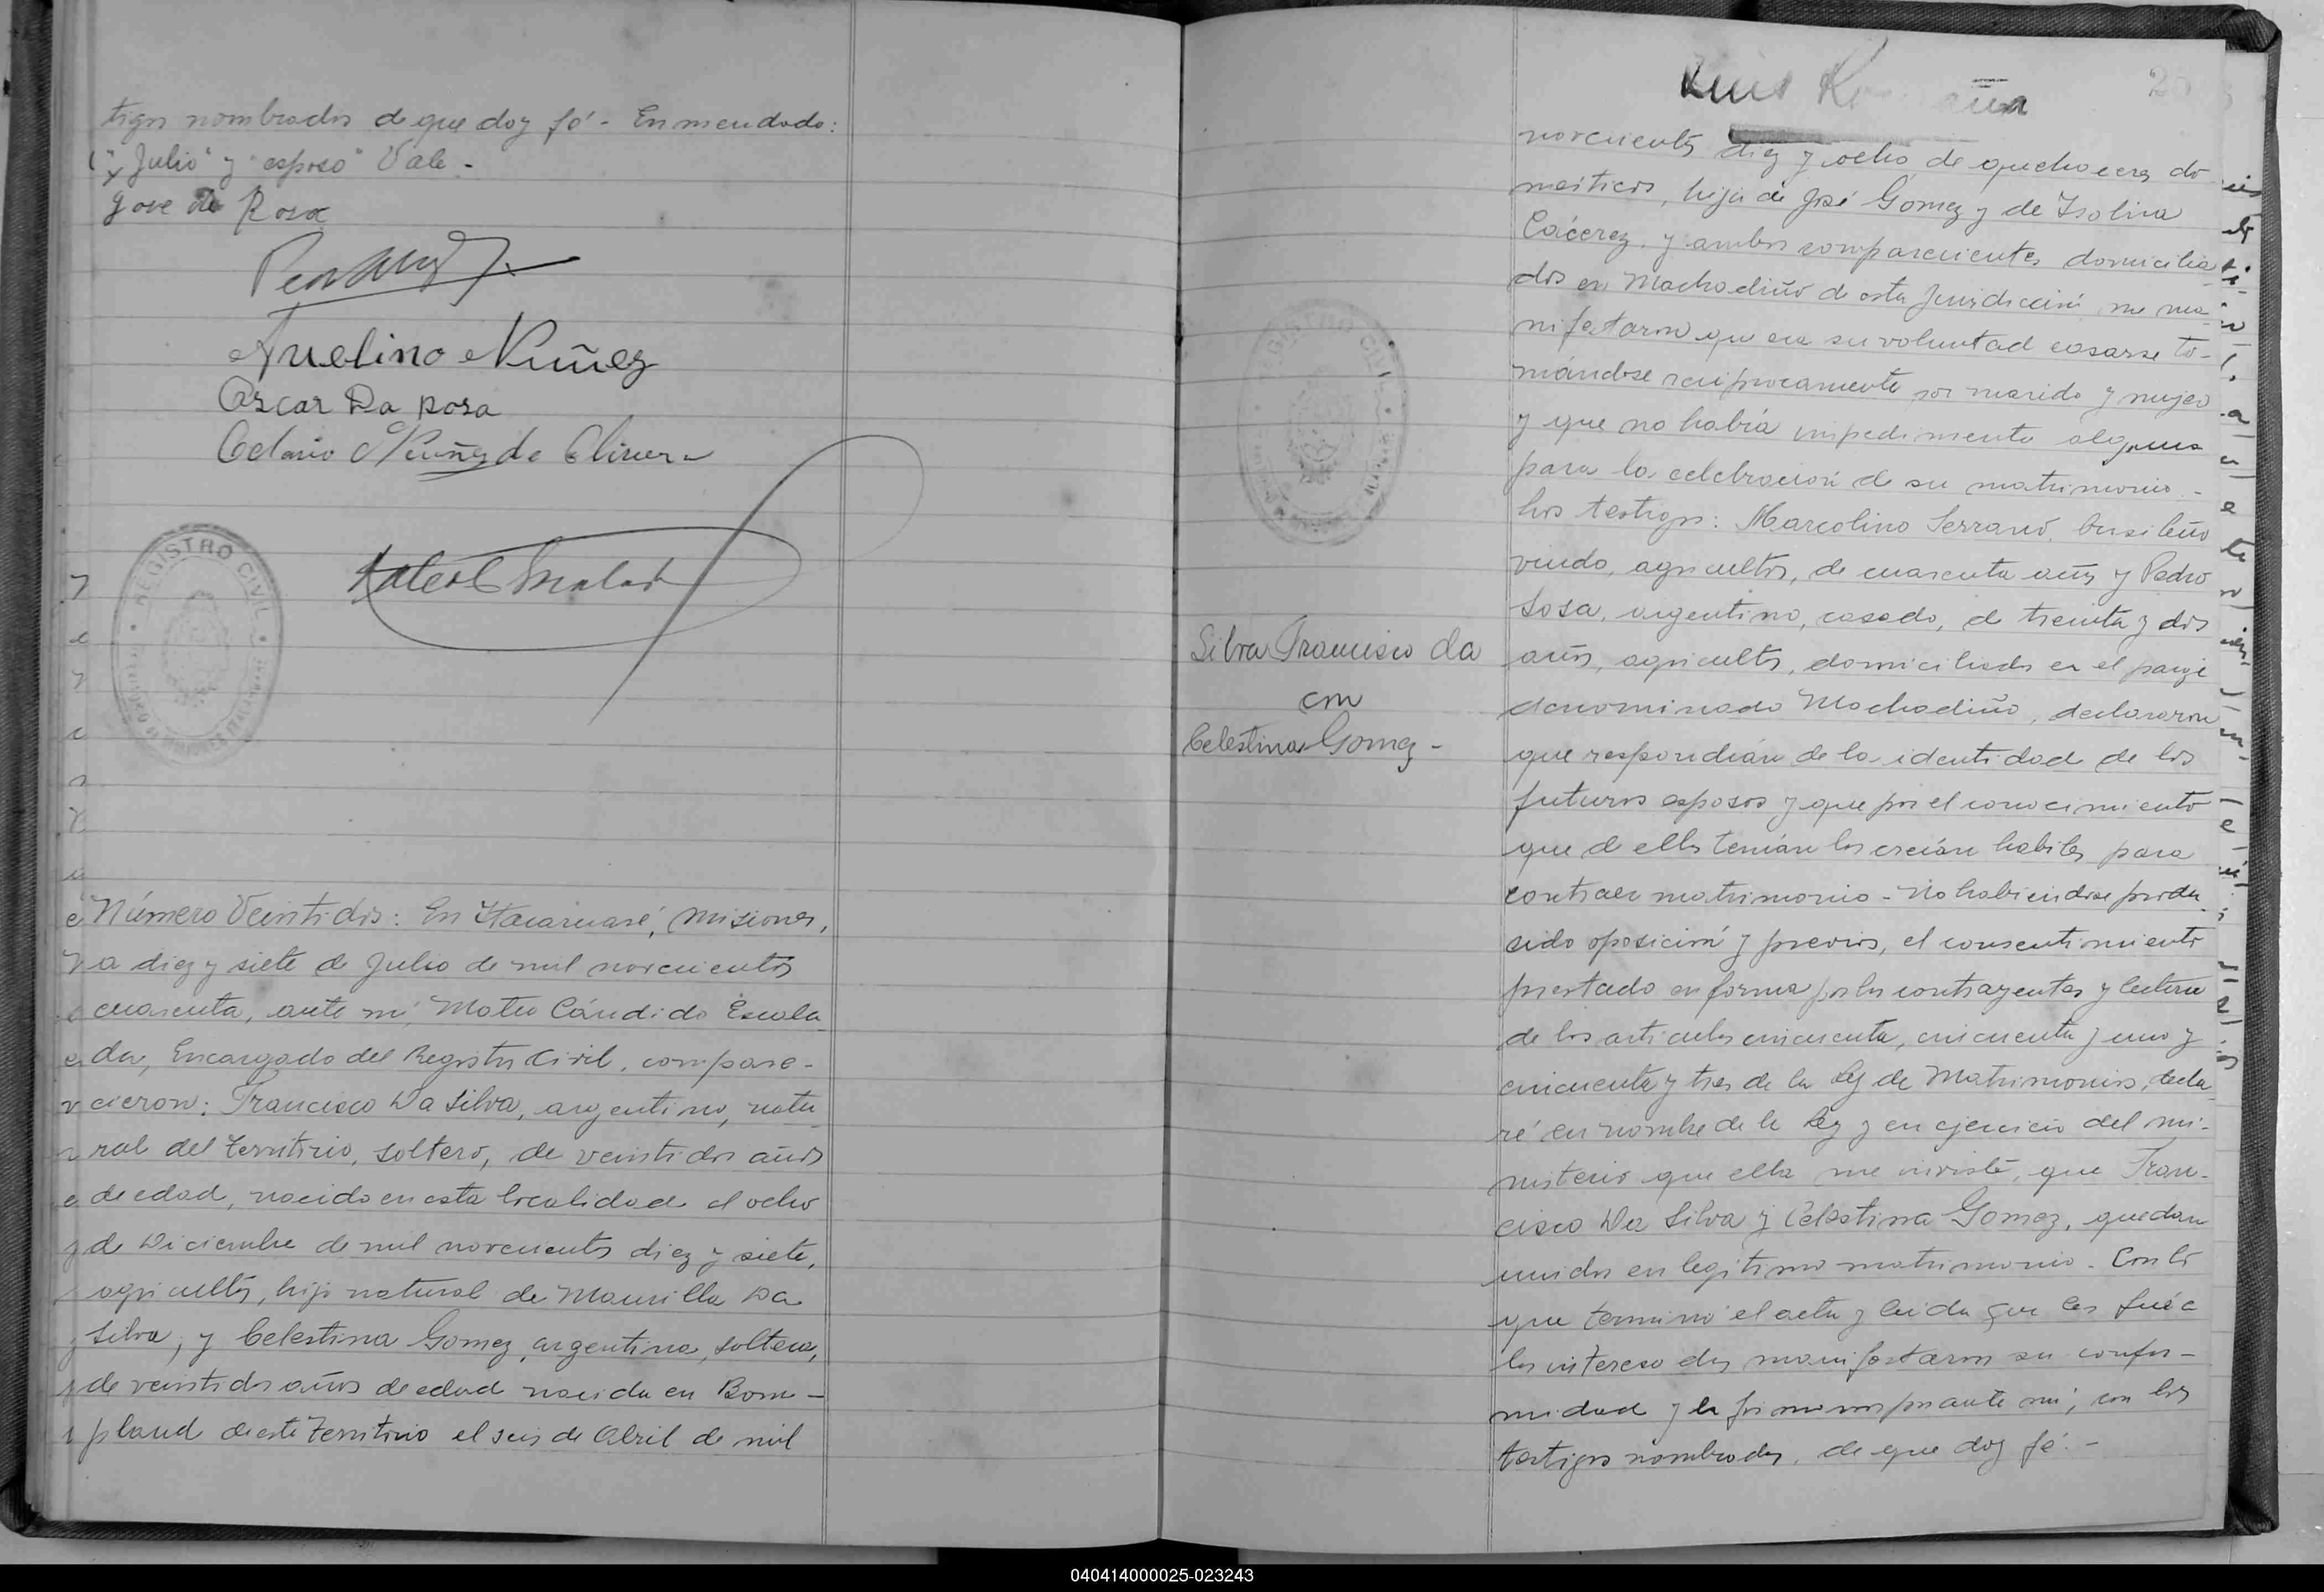 tigos nombrados de que doy fé - Enmendado:
"Julio" y "esposo" Vale -
Jose da Rosa
Avelino Nuñez
Oscar Da Rosa
Nuñez de Olivera
REGISTRO CIVIL
Número Veintidos: En Itacaruaré, Misiones,
a diez y siete de Julio de mil novecientos
cuarenta, ante mi, Mateo Cándido Escala
da, Encargado del Registro Civil, compare-
cieron: Francisco Da Silva, argentino, natu
ral del Territorio, soltero, de veintidos años
de edad, nacido en esta localidad el ocho
de Diciembre de mil novecientos diez y siete,
agricultor, hijo natural de Da
Silva, y Celestina Gomez, argentina, soltera,
de veintidos años de edad nacida en Bom-
pland de este Territorio el seis de Abril de mil
Luis
REGISTRO CIVIL
Silva Francisco da
con
Celestina Gomez -
novecientos diez y ocho de quehaceres do
mésticos, hija de José Gomez y de Isolina
Cácerez, y ambos comparecientes domicilia
dos en Machadiño de esta Jurisdicción, me ma
nifestaron que era su voluntad casarse to-
mándose reciprocamente por marido y mujer
y que no había impedimento alguno
para la celebración de su matrimonio. -
Los testigos: Marcolino Serrano, brasileño
viudo, agricultor, de cuarenta años y Pedro
Sosa, argentino, casado, de treinta y dos
años, agricultor, domiciliados en el paraje
denominado Machadiño, declararon
que respondían de la identidad de los
futuros esposos y que por el conocimiento
que de ellos tenían los creían habiles para
contraer matrimonio - No habiendose produ
cido oposición y previos, el consentimiento
prestado en forma por los contrayentes y lectura
de los articulos cincuenta, cincuenta y uno y
cincuenta y tres de la Ley de Matrimonios, decla
ré en nombre de la Ley y en ejercicio del mi-
nisterio que ella me inviste, que Fran-
cisco Da Silva y Celestina Gomez, quedan
unidos en legitimo matrimonio. Con lo
que terminó el acta y leida que les fué a
los interesados manifestaron su confor-
midad y la firmaron por ante mi, con los
testigos nombrados, de que doy fé. -
040414000025-023243